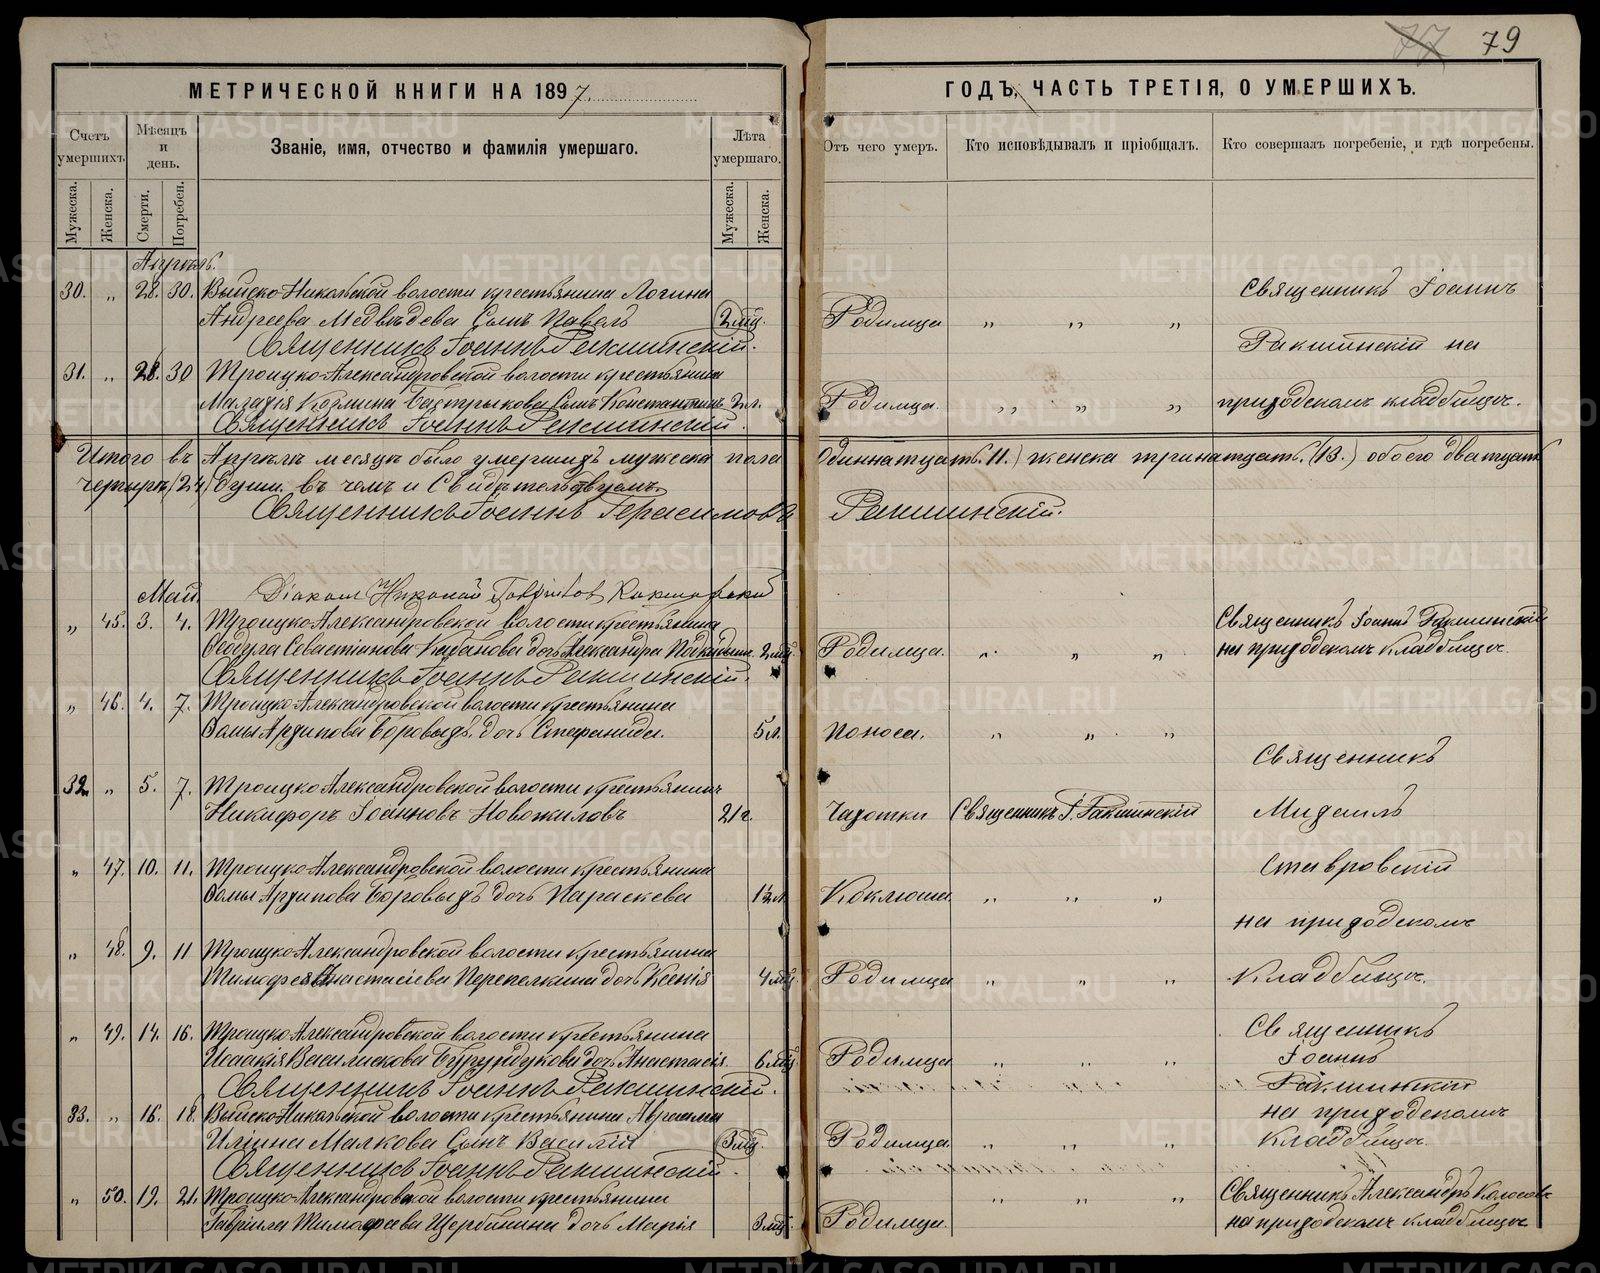 77 79
МЕТРИЧЕСКОЙ КНИГИ НА 1897
ГОДЪ, ЧАСТЬ ТРЕТІЯ, О УМЕРШИХЪ.
Счетъ умершихъ.
Мѣсяцъ и день.
Званіе, имя, отчество и фамилія умершаго.
Лѣта умершаго.
Отъ чего умеръ.
Кто исповѣдывалъ и пріобщалъ.
Кто совершалъ погребеніе, и гдѣ погребены.
Мужеска. Женска. Смерти. Погребен. Мужеска. Женска.
Апрѣль.
30. „ 28. 30. Выйско-Никольской волости крестьянина Логина
Андреева Медвѣдева Сынъ Павелъ 2 мц. Родимца „ „ „
Священникъ Іоаннъ Ракшинскій.
Священникъ Іоаннъ
Ракшинскій на
приходскомъ кладбищѣ.
31. „ 28. 30 Троицко-Александровской волости крестьянина
Малафія Козмина Бастрыкова Сынъ Константинъ 2 л. Родимца. „ „ „
Священникъ Іоаннъ Ракшинскій.
Итого въ Апрѣлѣ месяцѣ было умершихъ мужеска пола одиннатцать (11.) женска тринатцать. (13.) обоего дватцать
четыре (24) души. въ чемъ и Свидѣтельствуемъ.
Священникъ Іоаннъ Герасимовъ Ракшинскій.
Май. Діаконъ Николай
„ 45. 3. 4. Троицко-Александровской волости крестьянина
Феодула Севастіанова Кабанова дочь Александра 2 мц. Родимца. „ „ „
Священникъ Іоаннъ Ракшинскій.
Священникъ Іоаннъ Ракшинскій
на приходскомъ Кладбищѣ.
„ 46. 4. 7. Троицко-Александровской волости крестьянина
Ѳомы Архипова Боровыхъ. дочь Стефанида. 5 л. Поноса. „ „ „
32. „ 5. 7. Троицко Александровской волости крестьянинъ
Никифоръ Іоанновъ Новожиловъ 21 г. Чахотки Священникъ І. Ракшинскій
Священникъ
Михаилъ
Ставровскій
на приходскомъ
Кладбищѣ.
„ 47. 10. 11. Троицко-Александровской волости крестьянина
Ѳомы Архипова Боровыхъ дочь Параскева 1½ л. Коклюша „ „ „
„ 48. 9. 11 Троицко-Александровской волости крестьянина
Тимофея Анастасіева Перепелкина дочь Ксенія 4 мц. Родимца „ „ „
„ 49. 14. 16. Троицко-Александровской волости крестьянина
Исаакія Василискова Бурундукова дочь Анастасія. 6 мц. Родимца „ „ „
Священникъ Іоаннъ Ракшинскій.
Священникъ
Іоаннъ
Ракшинскій
на приходскомъ
Кладбищѣ.
33. „ 16. 18. Выйско-Никольской волости крестьянина Авраама
Иліина Малкова Сынъ Василій 3 мц. Родимца. „ „ „
Священникъ Іоаннъ Ракшинскій.
„ 50. 19. 21. Троицко-Александровской волости крестьянина
Гавріила Тимофеева Щербинина дочь Марія 3 мц. Родимца. „ „ „
Священникъ Александръ Колосовъ
на приходскомъ кладбищѣ
METRIKI.GASO-URAL.RU